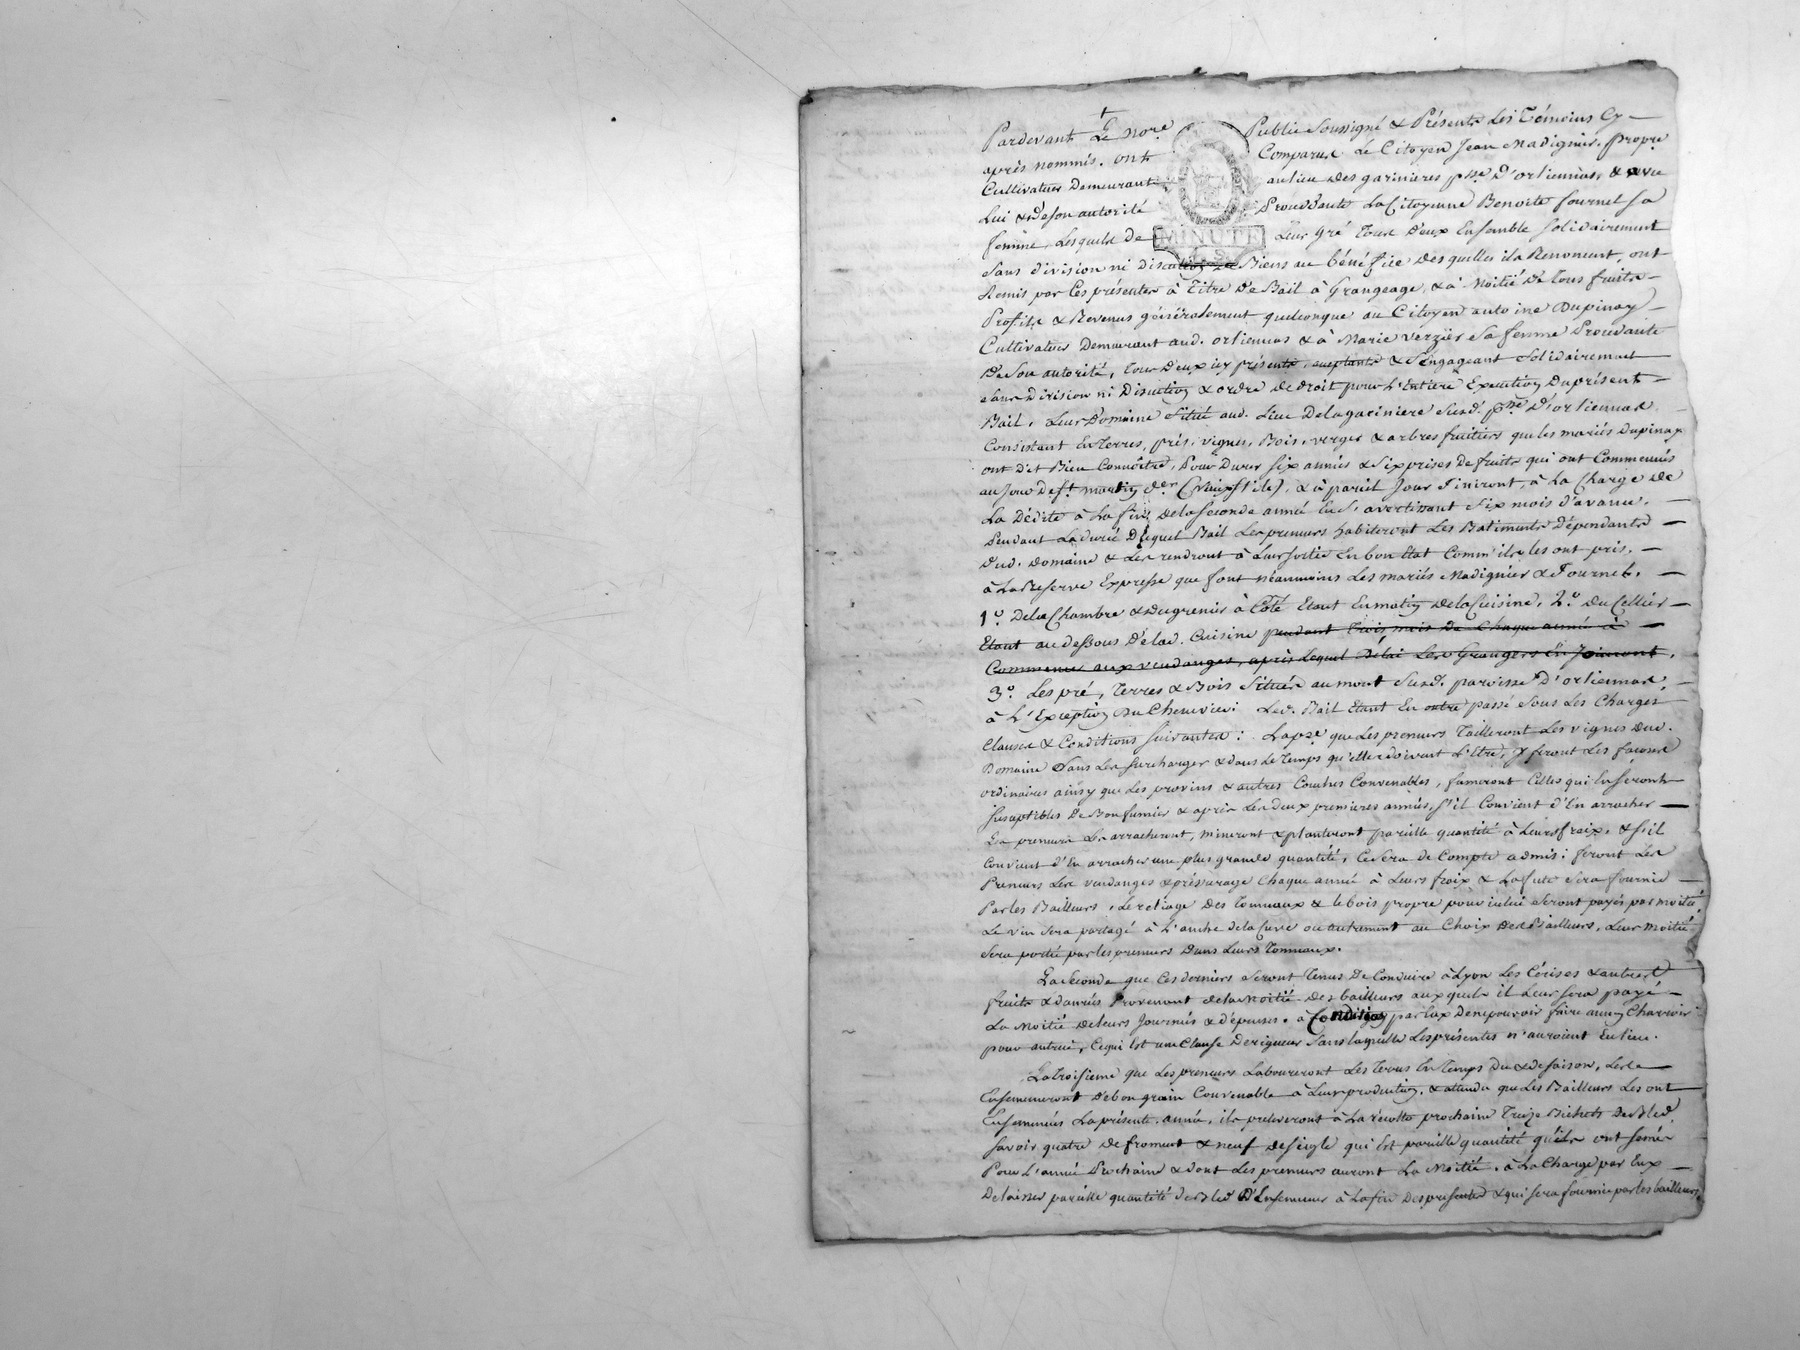 Pardevant Le no.re Public Soussigné & Présents Les Témoins Cy-
après nommés. ont Comparus Le Citoyen Jean Madignier, propre
Cultivateur Demeurant au lieu des garinieres p.sse d'orliennas, & avec
Lui & de son autorité Procédante La Citoyenne Benoite fournel sa
femme, Lesquels de Leur gré Tous d'eux Ensemble solidairement
sans division ni discution de Biens au bénéfice desquelles ils Renoncent, ont
Remis par Ces présentes à Titre de Bail à Grangeage, & à Moitié de Tous fruits
Profits & Revenus généralement quelconque au Citoyen antoine Dupinay
Cultivateur Demeurant aud. orliennas & à Marie verzier sa femme Procédante
De Son autorité, tous d'eux icy présents, acceptants & S'Engageant solidairement
sans Division ni Discution & ordre de droit pour L'Entiere Execution du présent
Bail, Leur Domaine situé aud. Lieu De la gariniere Susd. p.sse d'orliennas
Consistant En Terres, prés, vignes, Bois, verger & arbres fruitiers que les mariés Dupinay
ont dit Bien Connoître, Pour Durer six années & six prises de fruits qui ont Commencés
au Jour de s.t martin d.er (vieux stile), & à pareil Jour finiront, à La Charge de
La Dédite à La fin de la seconde année En s'avertissant six mois d'avance.
Pendant La durée Duquel Bail Les preneurs habiteront Les Batiments Dépendants
Dud. Domaine & Les rendront à Leur sortie En bon Etat Comm'ils les ont pris.
à La Reserve Expresse que font néanmoins Les mariés Madignier & Fournel.
1.º De la Chambre & du grenier à Coté Etant En matin de la Cuisine, 2.º du Cellier
Etant au dessous De lad. Cuisine pendant Trois mois de Chaque année à
Commencer aux vendanges, après Lequel Délai Les Grangers En Joüiront.
3.º Les pré, Terres & Bois situés au mont Susd. paroisse d'orliennas,
à L'Exception du Chenevier: Led. Bail Etant En outre passé sous Les Charges
Clauses & Conditions suivantes: La p.re que Les preneurs Tailleront Les vignes Dud.
Domaine sans Les surcharger & dans Le Temps qu'elles doivent L'Etre, y feront Les façons
ordinaires ainsy que Les provins & autres Courbes Convenables, fumeront Celles qui En seront
susceptibles De Bon fumier & après Les deux premieres années, s'il Convient d'En arracher
Les preneurs Les arracheront, mineront & planteront pareille quantité à Leurs fraix, & s'il
Convient d'En arracher une plus grande quantité, Ce sera de Compte admis: feront Les
Preneurs Les vendanges & pressurage Chaque année à Leurs fraix & La fute sera fournie
Par les Bailleurs, Le reliage des Tonneaux & le bois propre pour icelui seront payés par moitié,
Le vin sera partagé à L'anche de la Cuve ou autrement au Choix des Bailleurs, Leur moitié
sera portée par les preneurs Dans Leurs Tonneaux.
La seconde que Ces derniers seront Tenus De Conduire à Lyon Les Cérises & autres
fruits & danrées Provenant de la Moitié des bailleurs auxquels il Leur sera payé
La Moitié de leurs Journées & dépenses. à Condition par Eux De ne pouvoir faire aucun Charroir
pour autrui, Ce qui Est une Clause De rigueur sans laquelle Les présentes n'auroient Eu lieu.
La troisieme que Les preneurs Laboureront Les terres En Temps Du & de saison, Les
Ensemenceront De bon grain Convenable à Leur production, & attendu que Les Bailleurs Les ont
Ensemencés La présente année, ils preleveront à La récolte prochaine Treize Bichets De Bled
savoir quatre de froment & neuf de seigle qui Est pareille quantité qu'ils ont semés
Pour L'année Prochaine & dont Les preneurs auront La Moitié. à La Charge par Eux
De laisser pareille quantité de Bled D'Ensemencer à La fin Des presentes & qui sera fournie par les bailleurs,
MINUTE